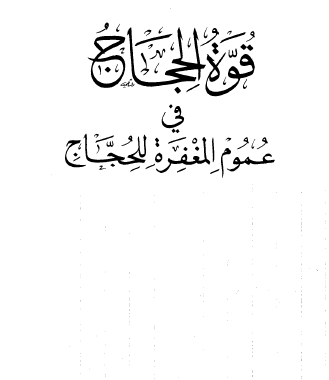 قُوَّةُ الحِجَاجُ
في
عُمُومُ المَغْفِرَةِ لِلْحُجَّاجِ